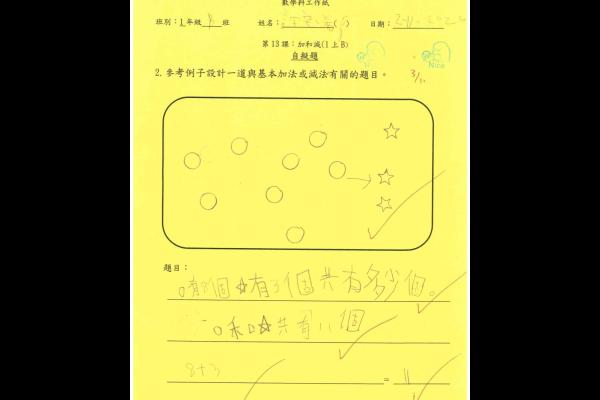 數學科工作紙
班別：1年級 班 姓名： ( ) 日期：
第13課：加和減(1上B)
自擬題
Nice
2. 參考例子設計一道與基本加法或減法有關的題目。
3/11
題目：
○有8個☆有3個共有多少個。
○和☆共有11個
8+3 = 11